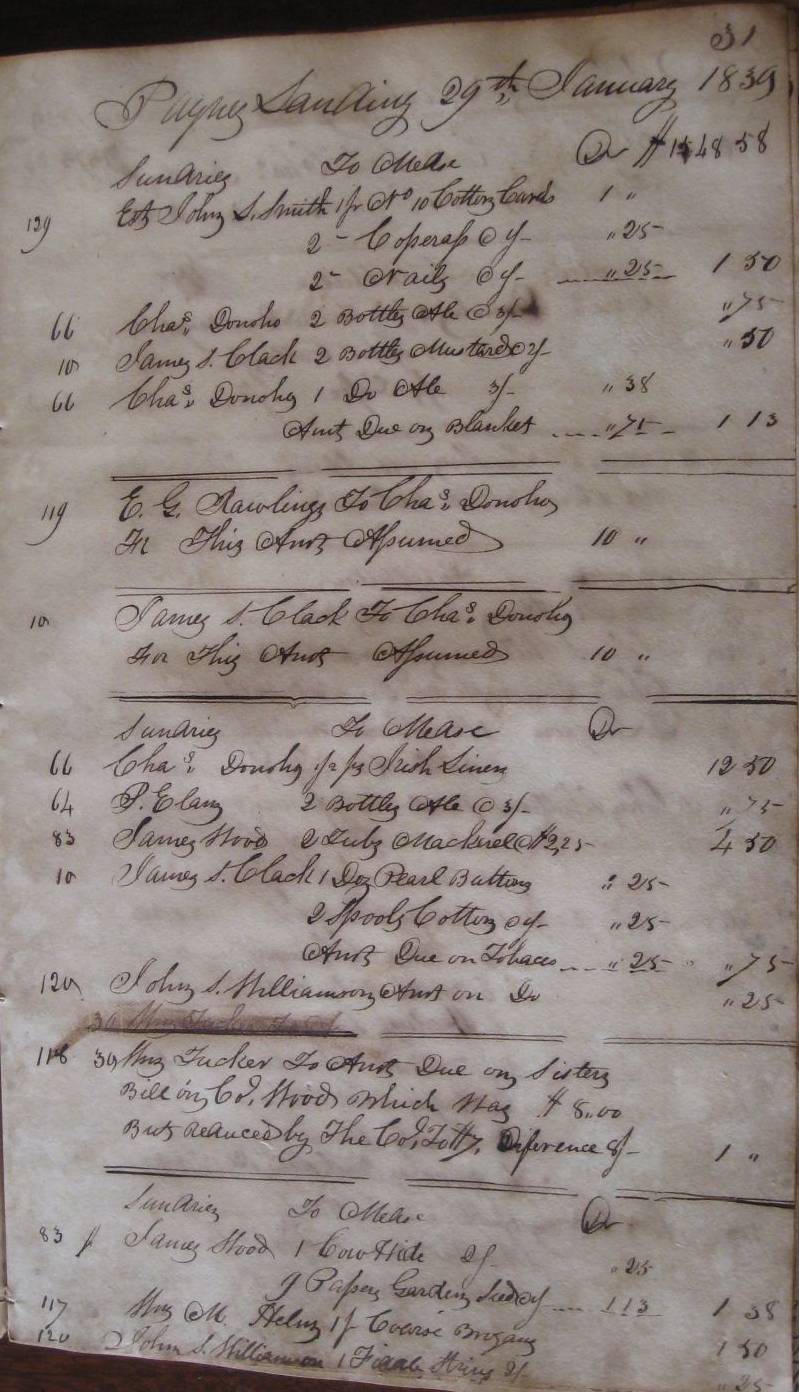 31
Paynes Landing 29th January 1839
Sundries To Mdse Dr $1548 58
129 Est John S. Smith 1 pr No 10 Cotton Cards 1 "
2 - Coperass @ 1/- " 25
2 - Nails @ 1/- " 25 1 50
66 Chas. Donoho 2 Bottles Ale @ 3/- " 75
10 James S. Clack 2 Bottles Mustard @ 2/- " 50
66 Chas. Donoho 1 Do Ale 3/- " 38
Amt Due on Blanket " 75 1 13
119 E. G. Rawlings To Chas. Donoho
For This Amt Assumed 10 "
10 James S. Clack To Chas. Donoho
For This Amt Assumed 10 "
Sundries To Mdse Dr
66 Chas. Donoho 1/2 ps Irish Linen 12 50
64 P. Elam 2 Bottles Ale @ 3/- " 75
83 James Wood 2 Tubs Mackrel @ $2,25 4 50
10 James S. Clack 1 Doz Pearl Buttons " 25
2 Spools Cotton @ 1/- " 25
Amt Due on Tobacco " 25 " 75
120 John S. Williamson Amt on Do " 25
30 Wm Tucker To
118 30 Wm Tucker To Amt Due on Sisters
Bill on Col. Wood Which Was $ 8,,00
But reduced by The Col. To $7. Diference 8/- 1 "
Sundries To Mdse Dr
83 James Wood 1 Cow Hide 2/- " 25
9 Papers Garden Seed @ 1/- 1 13 1 38
117 Wm M. Helm 1 pr Coarse Brogans 1 50
120 John S. Williamson 1 Fiddle String 2/- " 25